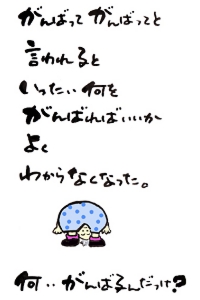 がんばって がんばってと
言われると
いったい 何を
がんばればいいか
よく
わからなくなった。
何を がんばるんだっけ?